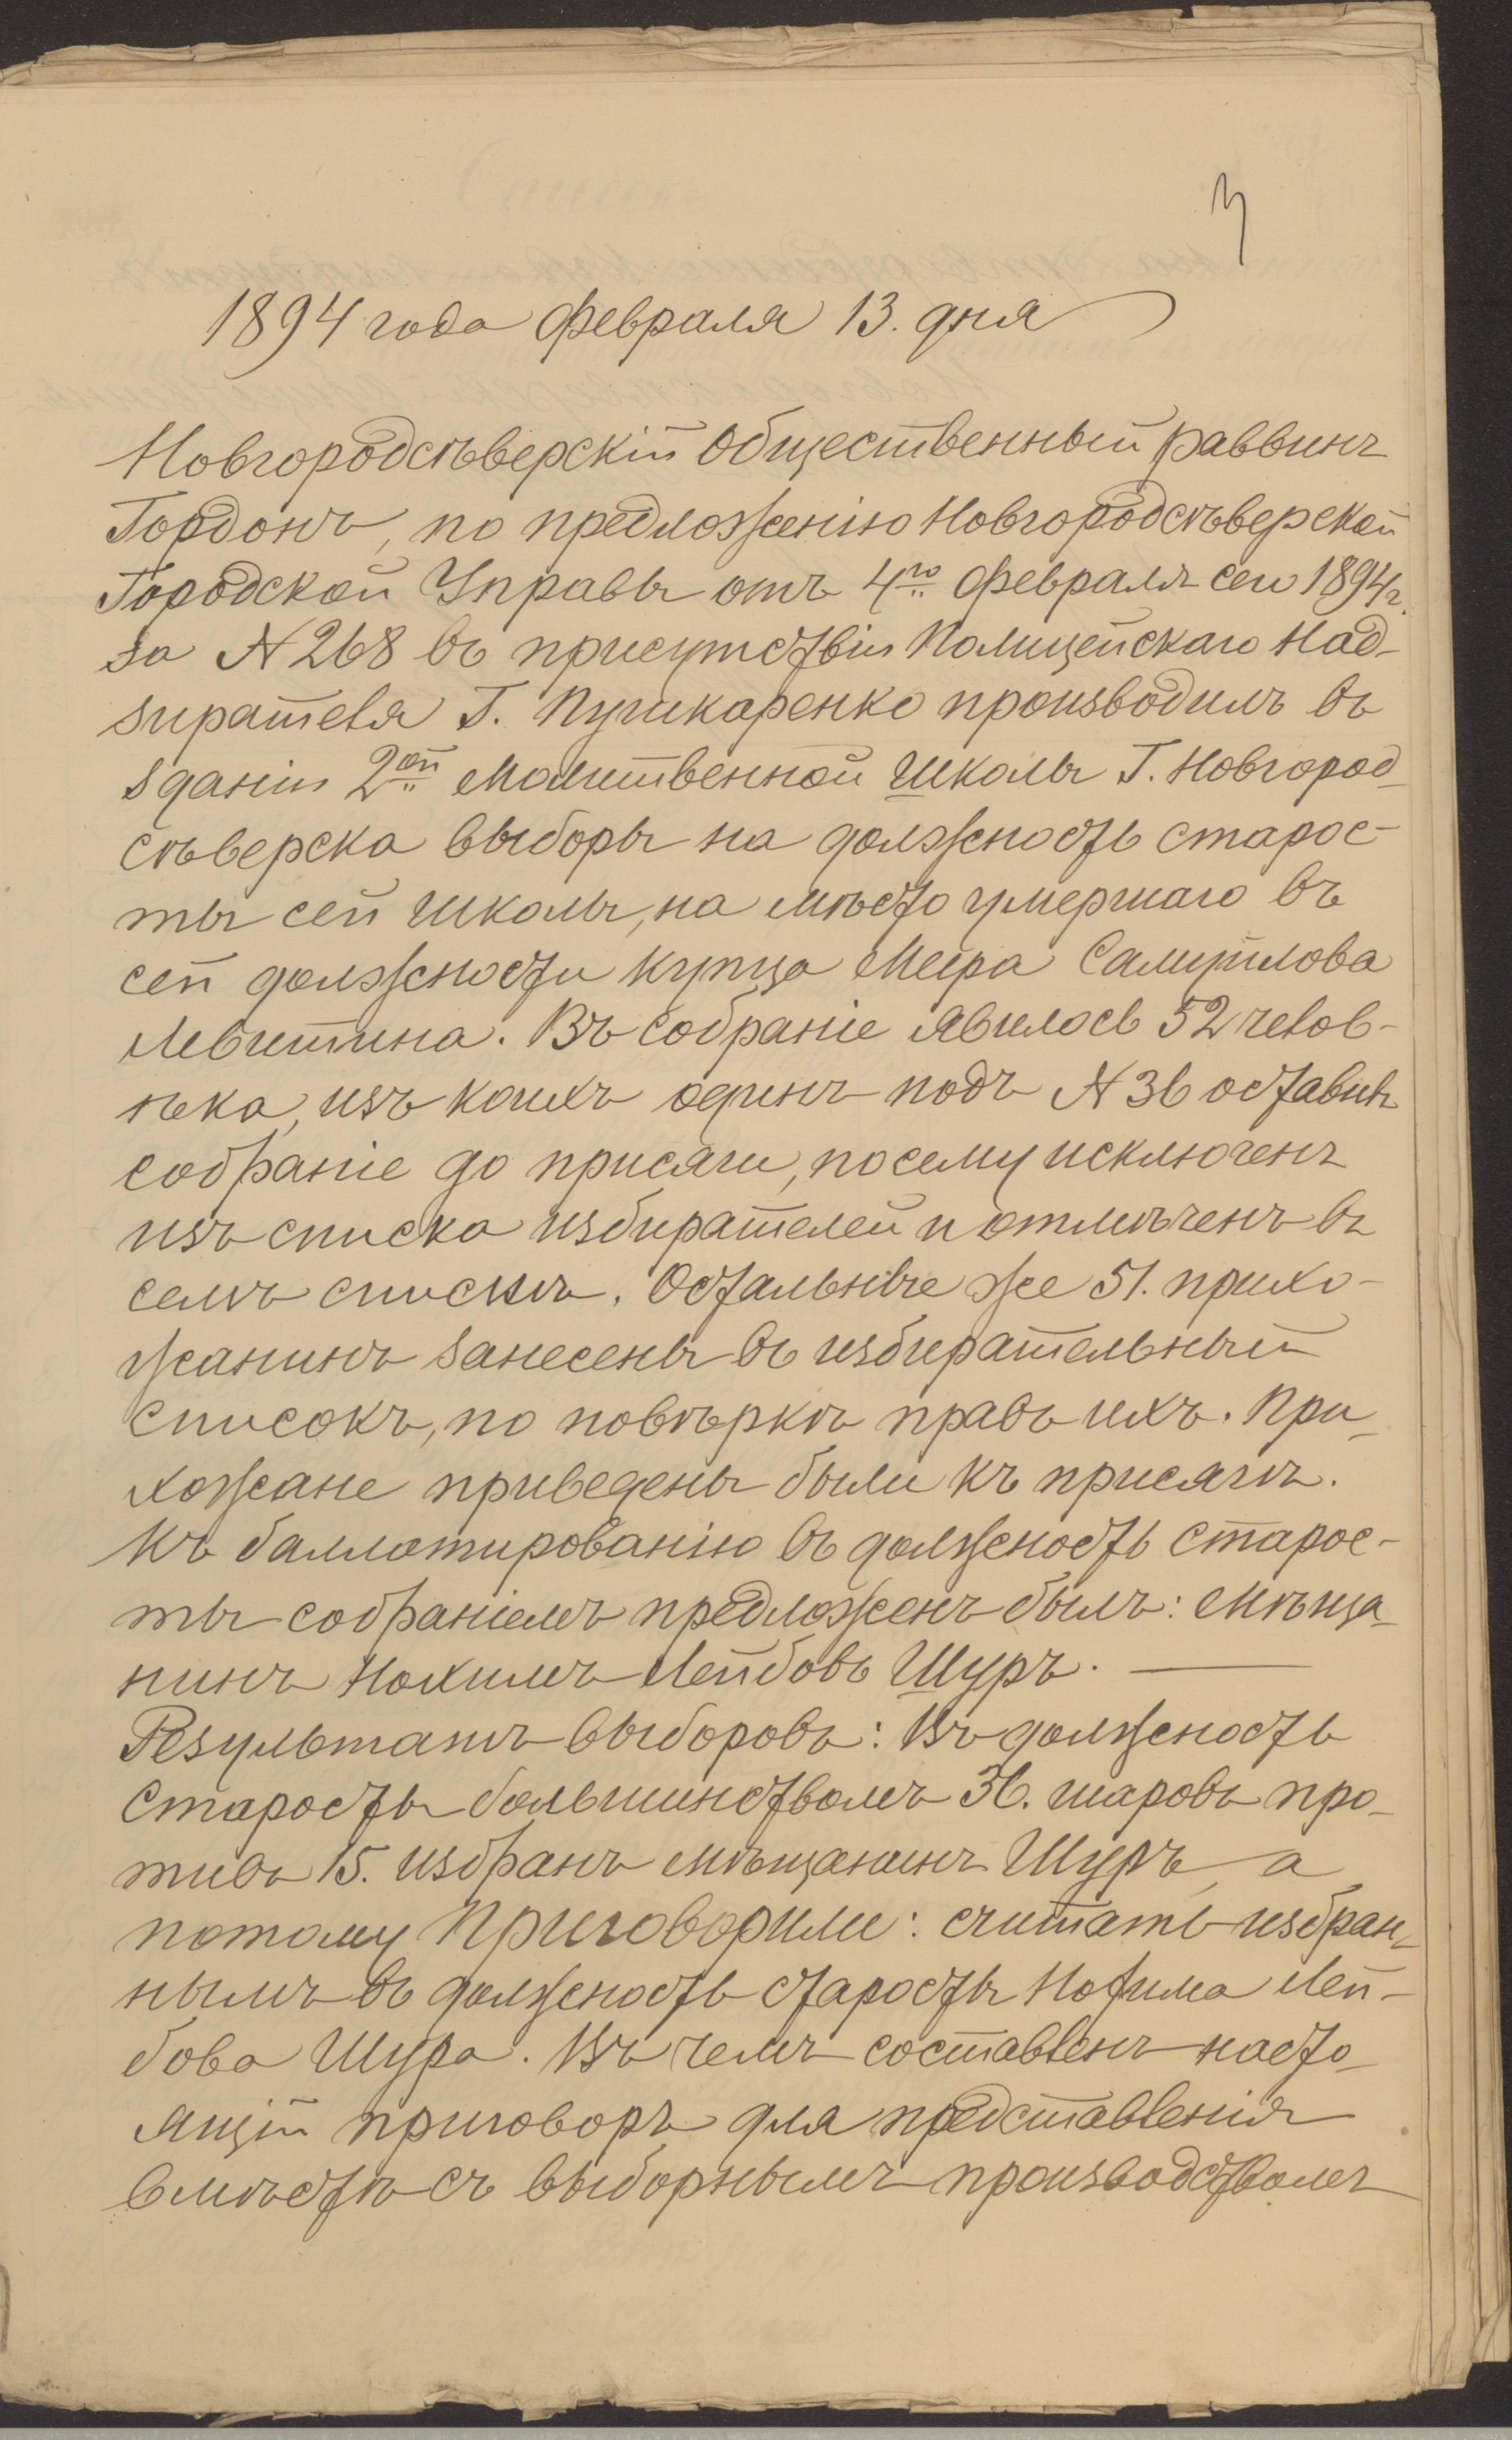 3
1894 года февраля 13. дня
Новгородсѣверскій Общественный раввинъ
Гордонъ, по предложенію Новгородсѣверской
Городской Управы отъ 4го февраля сего 1894 г.
за № 268 въ присутствіи Полицейскаго Над-
зирателя Г. Пушкаренко производилъ въ
зданіи 2ой Молитвенной Школы Г. Новгород-
сѣверска выборы на должность старос-
ты сей Школы, на мѣсто умершаго въ
сей должности купца Меира Самуйлова
Левитина. Въ собраніе явилось 52 челов-
ѣка, изъ коихъ одинъ подъ № 36 оставилъ
собраніе до присяги, посему исключенъ
изъ списка избирателей и отмѣченъ въ
семъ спискѣ. Остальные же 51. прихо-
жанинъ занесены въ избирательный
списокъ, по повѣркѣ правъ ихъ. При-
хожане приведены были къ присягѣ.
Къ баллотированію въ должность старос-
ты собраніемъ предложенъ былъ: Мѣща-
нинъ Нохимъ Лейбовъ Шуръ. —
Результатъ выборовъ: Въ должность
старосты большинствомъ 36. шаровъ про-
тивъ 15. избранъ мѣщанинъ Шуръ, а
потому Приговорили: считать избран-
нымъ въ должность старосты Нохима Лей-
бова Шура. Въ чемъ составленъ насто-
ящій приговоръ для представленія
вмѣстѣ съ выборнымъ производствомъ